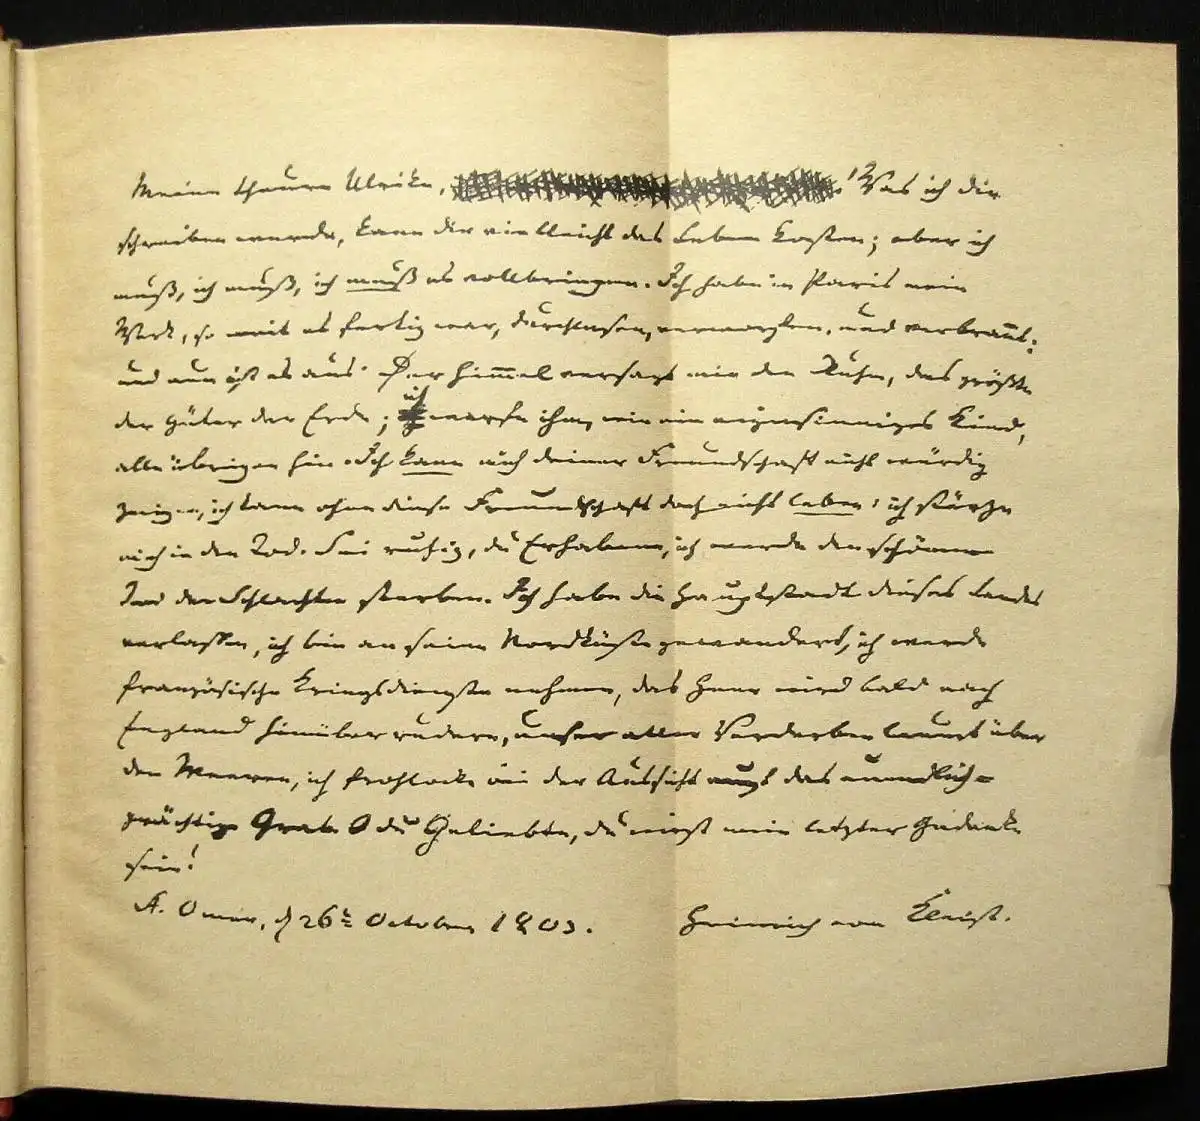 Meine theure Ulrike, ! Was ich dir
schreiben werde, kann dir vielleicht das Leben kosten; aber ich
muß, ich muß, ich muß es vollbringen. Ich habe in Paris mein
Werk, so weit es fertig war, durchlesen, verworfen, und verbrannt:
und nun ist es aus. Der Himmel versagt mir den Ruhm, das größte
der Güter der Erde; ich werfe ihm, wie ein eigensinniges Kind,
alle übrigen hin. Ich kann mich deiner Freundschaft nicht würdig
zeigen, ich kann ohne diese Freundschaft doch nicht leben: ich stürze
mich in den Tod. Sei ruhig, du Erhabene, ich werde den schönen
Tod der Schlachten sterben. Ich habe die Hauptstadt dieses Landes
verlassen, ich bin an seine Nordküste gewandert, ich werde
französische Kriegsdienste nehmen, das Heer wird bald nach
England hinüber rudern, unser aller Verderben lauert über
den Meeren, ich frohlocke bei der Aussicht auf das unendlich-
prächtige Grab. O du Geliebte, du wirst mein letzter Gedanke
sein!
St. Omer, d 26t October 1803. Heinrich von Kleist.